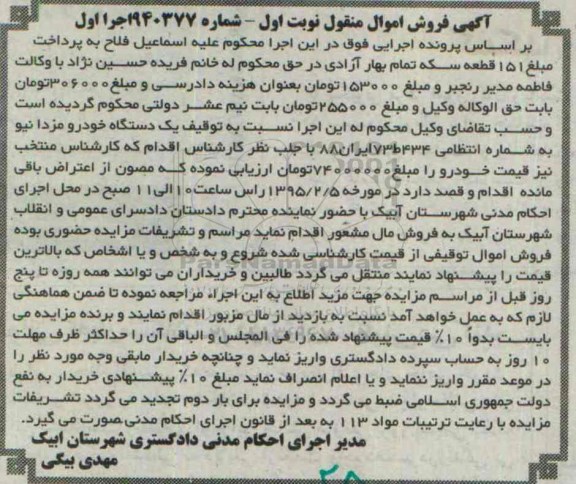 آگهی فروش اموال منقول نوبت اول - شماره ۹۴۰۳۷۷اجرا اول
بر اساس پرونده اجرایی فوق در این اجرا محکوم علیه اسماعیل فلاح به پرداخت
مبلغ۱۵۱قطعه سکه تمام بهار آزادی در حق محکوم له خانم فریده حسین نژاد با وکالت
فاطمه مدیر رنجبر و مبلغ ۱۵۳۰۰۰تومان بعنوان هزینه دادرسی و مبلغ۳۰۶۰۰۰تومان
بابت حق الوکاله وکیل و مبلغ ۲۵۵۰۰۰تومان بابت نیم عشر دولتی محکوم گردیده است
و حسب تقاضای وکیل محکوم له این اجرا نسبت به توقیف یک دستگاه خودرو مزدا نیو
به شماره انتظامی ۴۳۴ط۷۳ایران۸۸ با جلب نظر کارشناس اقدام که کارشناس منتخب
نیز قیمت خودرو را مبلغ۷۴۰۰۰۰۰۰تومان ارزیابی نموده که مصون از اعتراض باقی
مانده اقدام و قصد دارد در مورخه ۱۳۹۵/۲/۵راس ساعت۱۰الی۱۱ صبح در محل اجرای
احکام مدنی شهرستان آبیک با حضور نماینده محترم دادستان دادسرای عمومی و انقلاب
شهرستان آبیک به فروش مال مشعور اقدام نماید مراسم و تشریفات مزایده حضوری بوده
فروش اموال توقیفی از قیمت کارشناسی شده شروع و به شخص و یا اشخاص که بالاترین
قیمت را پیشنهاد نمایند منتقل می گردد طالبین و خریداران می توانند همه روزه تا پنج
روز قبل از مراسم مزایده جهت مزید اطلاع به این اجراء مراجعه نموده تا ضمن هماهنگی
لازم که به عمل خواهد آمد نسبت به بازدید از مال مزبور اقدام نمایند و برنده مزایده می
بایست بدواً ۱۰٪ قیمت پیشنهاد شده را فی المجلس و الباقی آن را حداکثر ظرف مهلت
۱۰ روز به حساب سپرده دادگستری واریز نماید و چنانچه خریدار مابقی وجه مورد نظر را
در موعد مقرر واریز ننماید و یا اعلام انصراف نماید مبلغ ۱۰٪ پیشنهادی خریدار به نفع
دولت جمهوری اسلامی ضبط می گردد و مزایده برای بار دوم تجدید می گردد تشریفات
مزایده با رعایت ترتیبات مواد ۱۱۳ به بعد از قانون اجرای احکام مدنی صورت می گیرد.
مدیر اجرای احکام مدنی دادگستری شهرستان ابیک
مهدی بیگی
۲۵